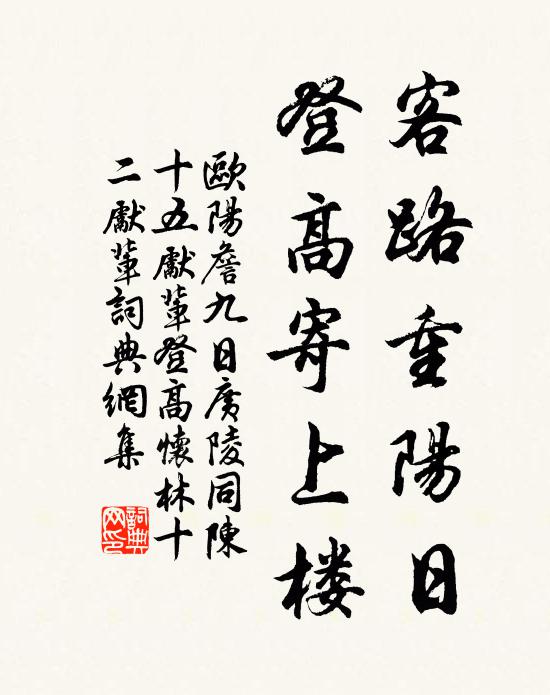 客路重陽日
登高寄上楼
歐陽詹九日廣陵同陳
十五獻輩登高懷林十
二獻輩詞典網集
詞典
网印